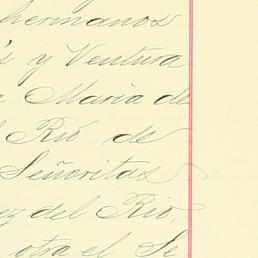 hermanos
s y Ventura
a María de
l Rió de
Señoritas
ez del Rio,
otra el Se